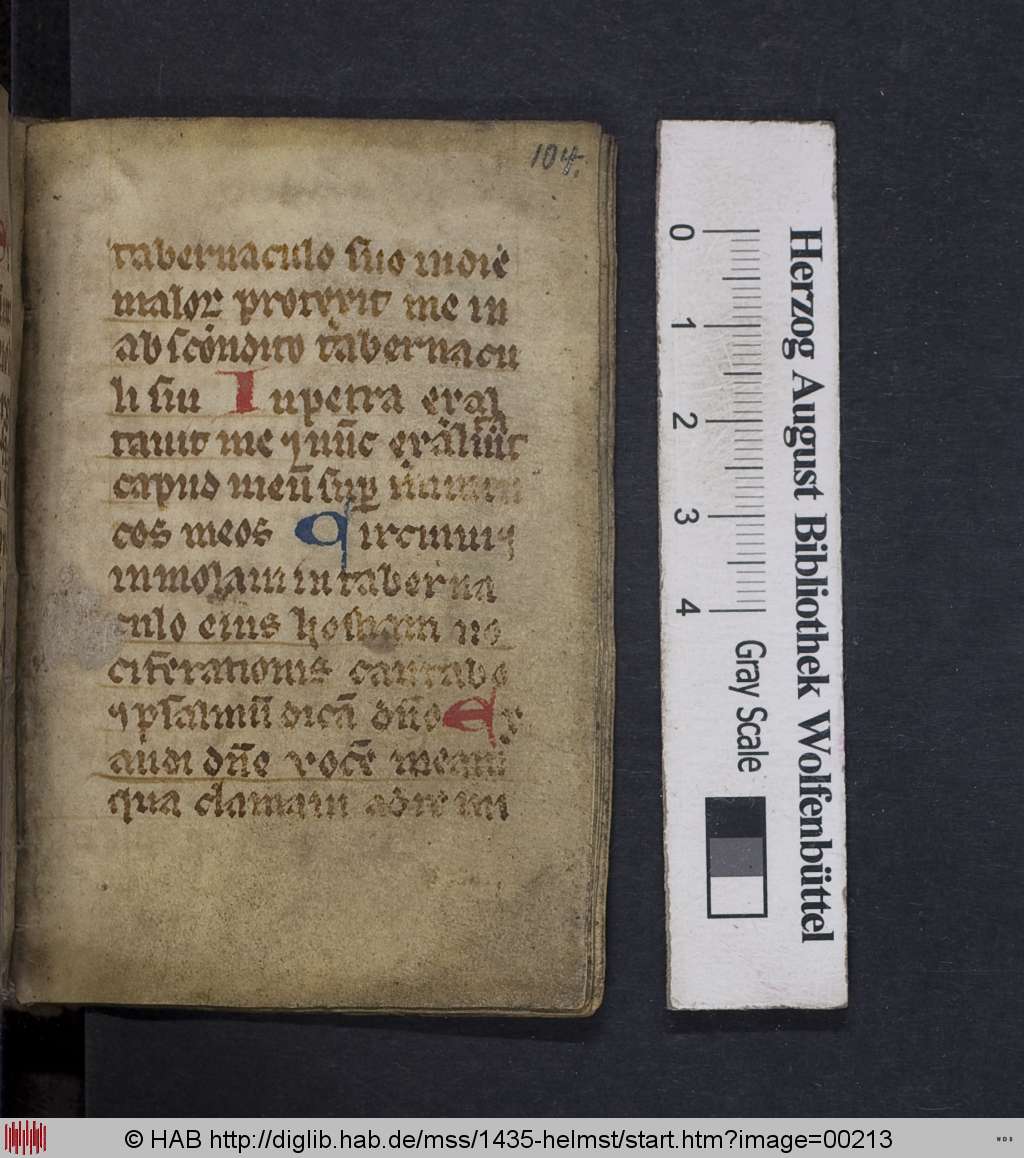 104.
tabernaculo suo in die
maloꝝ protexit me in
abscōndito tabernacu
li sui In petra exal
tauit me ⁊ nūc exaltauit
capud meū sup inimi
cos meos Circuiui ⁊
inmolaui in taberna
culo eius hostiam uo
ciferationis cantabo
⁊ psalmū dicā dn̄o Ex
audi dn̄e vocē meam
qua clamaui ad te mi
0 1 2 3 4
Gray Scale
Herzog August Bibliothek Wolfenbüttel
© HAB http://diglib.hab.de/mss/1435-helmst/start.htm?image=00213